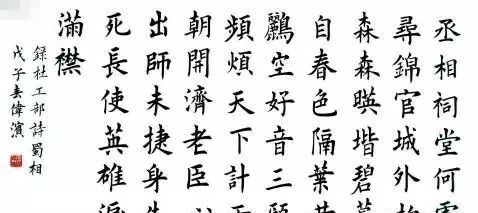 丞相祠堂何
尋錦官城外
森森暎堦碧
自春色隔葉
鸝空好音三顧
頻煩天下計
朝開濟老臣心
出師未捷身
死長使英雄淚
滿襟
錄杜工部詩蜀相
戊子春偉濱